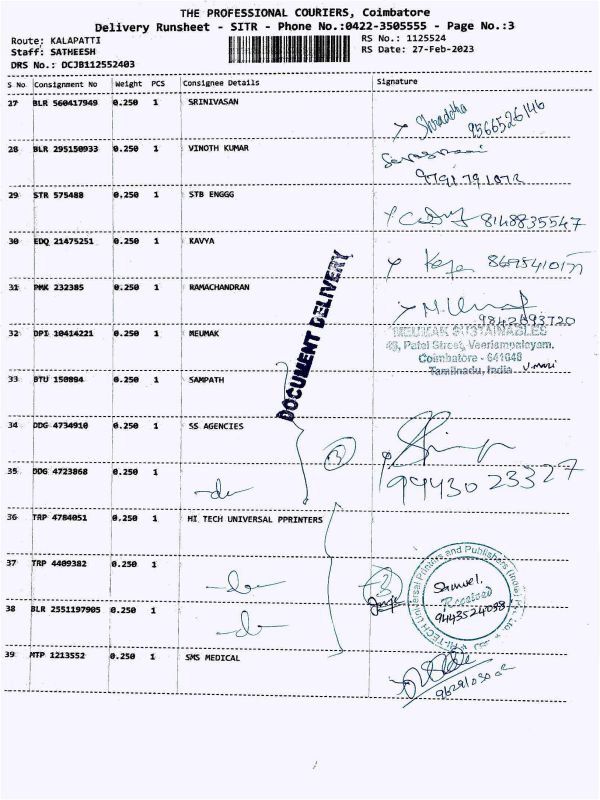 THE PROFESSIONAL COURIERS, Coimbatore
Delivery Runsheet - SITR - Phone No.:0422-3505555 - Page No.:3
Route; KALAPATTI
Staff: SATHEESH
DRS No.: DCJB112552403
RS No.: 1125524
RS Date: 27-Feb-2023
S No Consignment No Weight PCS Consignee Details Signature
27 BLR 560417949 0.250 1 SRINIVASAN Shraddha 9566526146
28 BLR 295150933 0.250 1 VINOTH KUMAR
29 STR 575488 0.250 1 STB ENGGG 8148835547
30 EDQ 21475251 0.250 1 KAVYA
31 PMK 232385 0.250 1 RAMACHANDRAN
32 DPI 10414221 0.250 1 MEUMAK MEUMAK SUSTAINABLES
49, Patel Street, Veeriampalayam,
Coimbatore - 641048
Tamilnadu, India
33 BTU 150894 0.250 1 SAMPATH
DOCUMENT DELIVERY
34 DDG 4734910 0.250 1 SS AGENCIES
3
35 DDG 4723868 0.250 1 -do- 9443023327
36 TRP 4784051 0.250 1 HI TECH UNIVERSAL PPRINTERS
37 TRP 4409382 0.250 1 -do- 3
Hi-TECH Universal Printers and Publishers (India) Pvt. Ltd.
Samuel.
Received
9443524098
38 BLR 2551197905 0.250 1 -do-
39 MTP 1213552 0.250 1 SMS MEDICAL